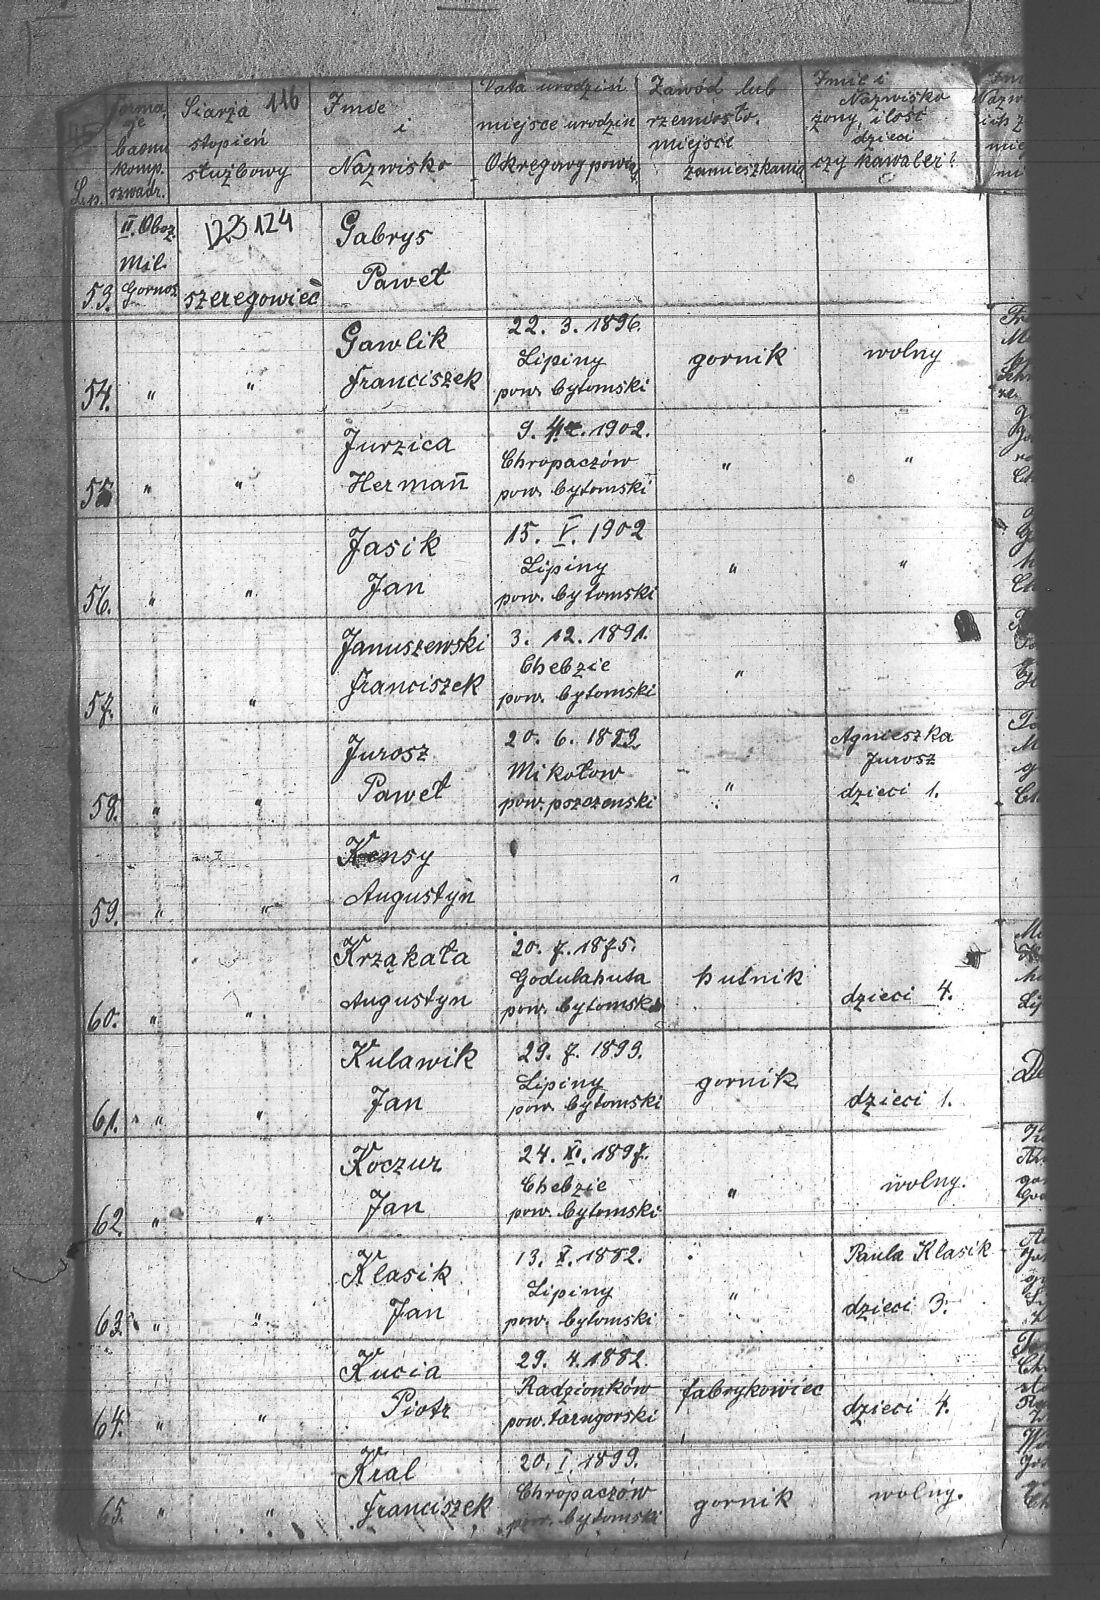 Forma-
cje
baonu
komp.
szwadr.
L.p.
Siarza 116
stopień
służbowy
Imie
i
Nazwisko
Data urodzin
miejsce urodzin
Okręgowy powiat
Zawód lub
rzemiosło.
miejsce
zamieszkania
Imie i
Nazwisko
żony, ilość
dzieci
czy kawaler?
II. Oboz.
Mil.
53. Gornos.
123 124
szeregowiec
Gabrys
Paweł
54. " "
Gawlik
Franciszek
22. 3. 1896.
Lipiny
pow. bytomski
gornik
wolny
55. " "
Jurzica
Hermañ
9. 1902.
Chropaczów
pow. bytomski
"
"
56. " "
Jasik
Jan
15. V. 1902
Lipiny
pow. bytomski
"
"
57. " "
Januszewski
Franciszek
3. 12. 1891.
Chebzie
pow. bytomski
"
58. " "
Jurosz
Paweł
20. 6.
Mikołow
pow. pszczenski
"
Agnieszka
Jurosz
dzieci 1.
59. " "
Kensy
Augustyn
60. " "
Krząkała
Augustyn
20. 7. 1875.
Godulahuta
pow. bytomski
hutnik
dzieci 4.
61. " "
Kulawik
Jan
29. 7. 1899.
Lipiny
pow. bytomski
gornik
dzieci 1.
62. " "
Koczur
Jan
24. XI. 1897.
Chebzie
pow. bytomski
"
wolny.
63. " "
Klasik
Jan
13. X. 1882.
Lipiny
pow. bytomski
"
Paula Klasik
dzieci 3.
64. " "
Kucia
Piotr
29. 4. 1882.
Radzionków
pow. tarngorski
fabrykowiec
dzieci 4.
65. " "
Kral
Franciszek
20. I. 1899.
Chropaczów
pow. bytomski
gornik
wolny.